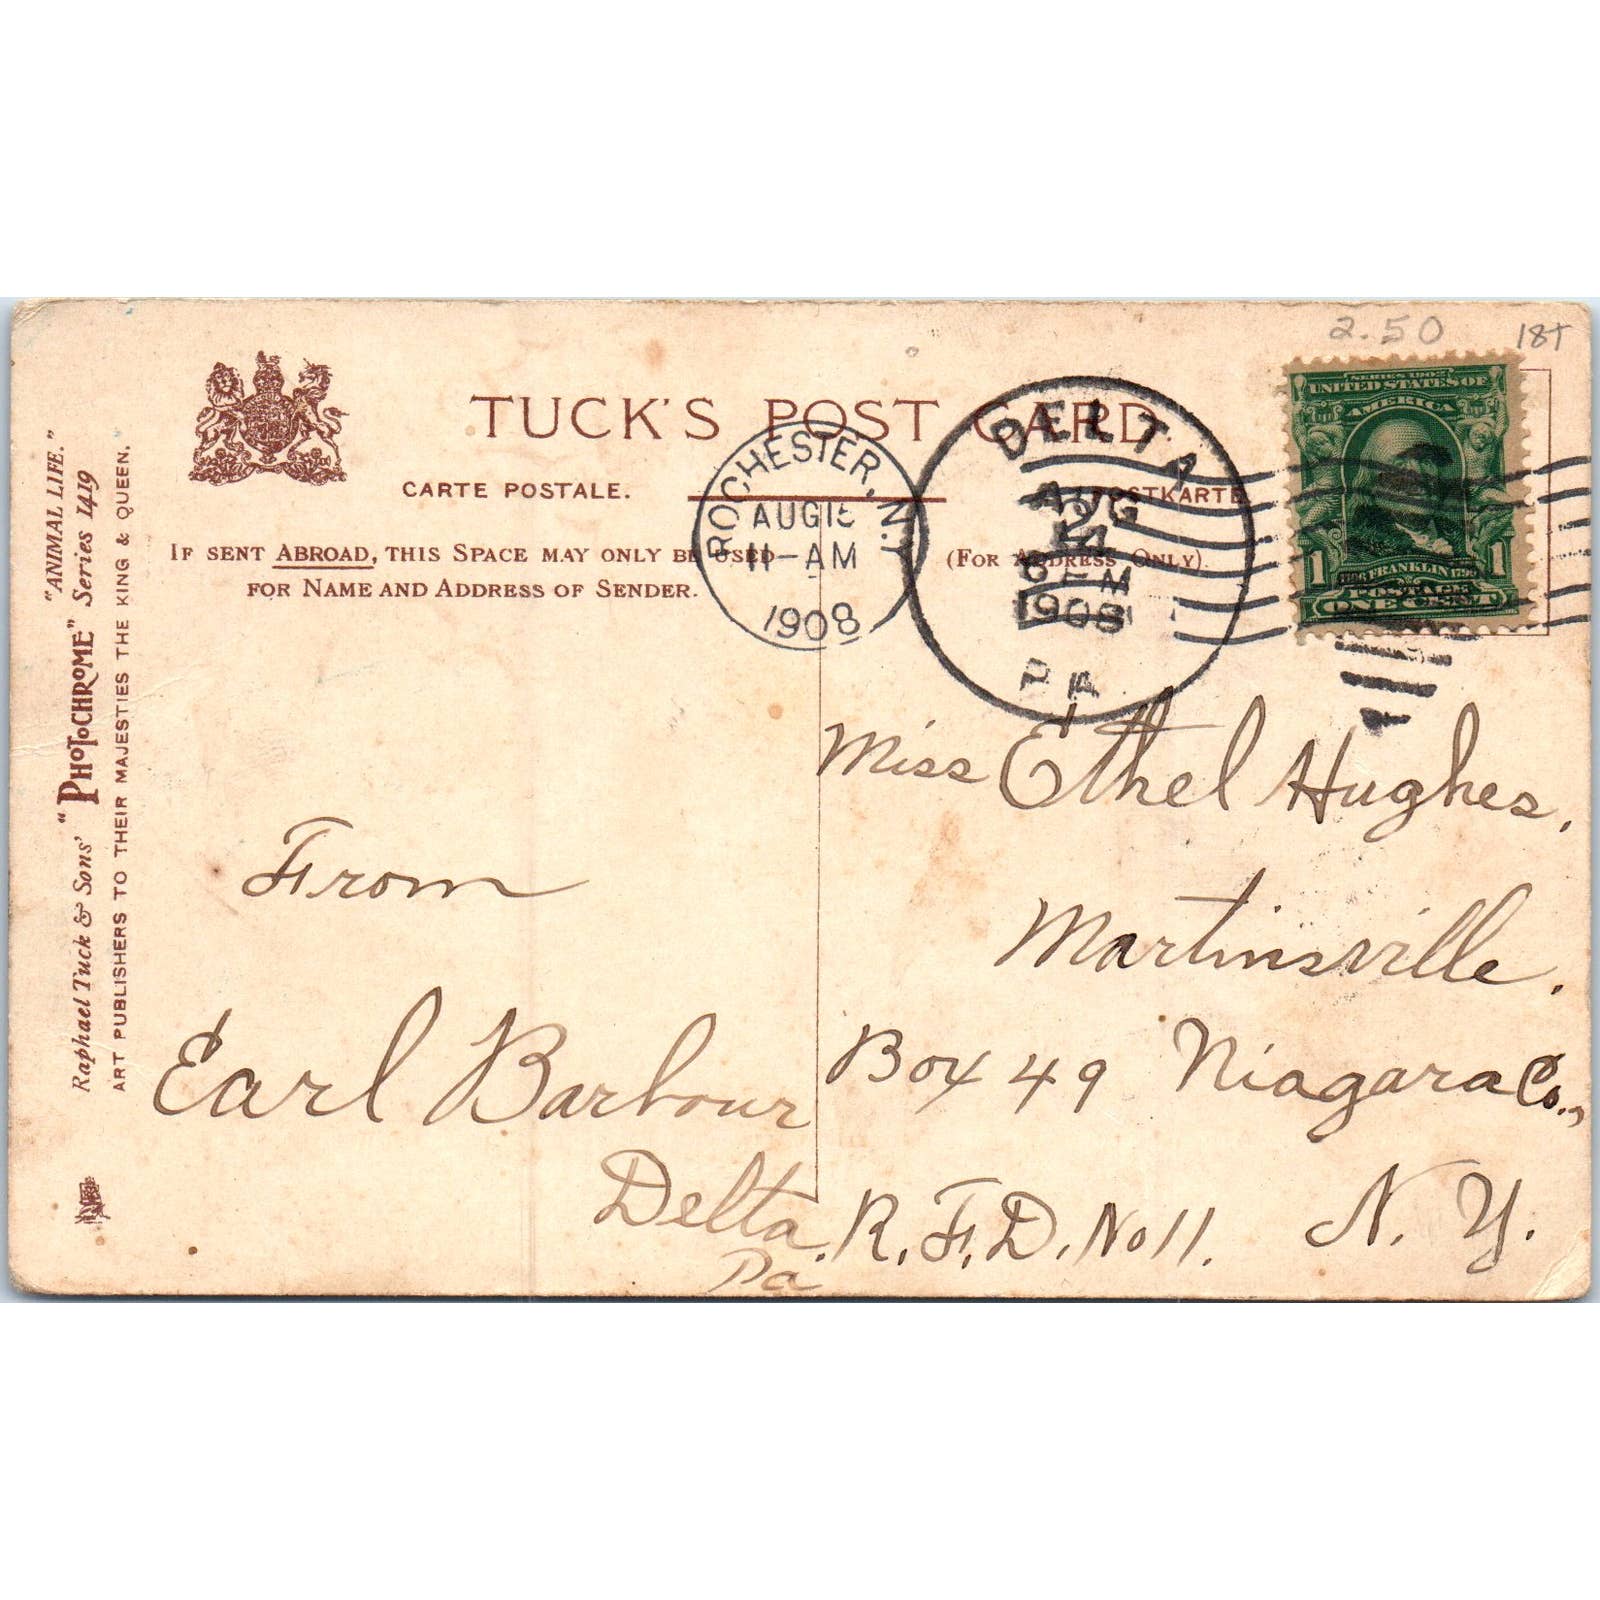 2.50 18T
TUCK'S POST CARD
CARTE POSTALE. POSTKARTE
IF SENT ABROAD, THIS SPACE MAY ONLY BE USED
FOR NAME AND ADDRESS OF SENDER.
(FOR ADDRESS ONLY).
Raphael Tuck & Sons' "PHOTOCHROME" Series 1419 "ANIMAL LIFE."
ART PUBLISHERS TO THEIR MAJESTIES THE KING & QUEEN.
ROCHESTER, N.Y.
AUG 15
11-AM
1908
DELTA
AUG
6 PM
1908
PA
SERIES 1902
UNITED STATES OF
AMERICA
1 FRANKLIN 1
POSTAGE
ONE CENT
From
Earl Barbour
Delta,
Pa
Miss Ethel Hughes,
Martinsville.
Box 49 Niagara Co.,
R.F.D. No 11. N. Y.